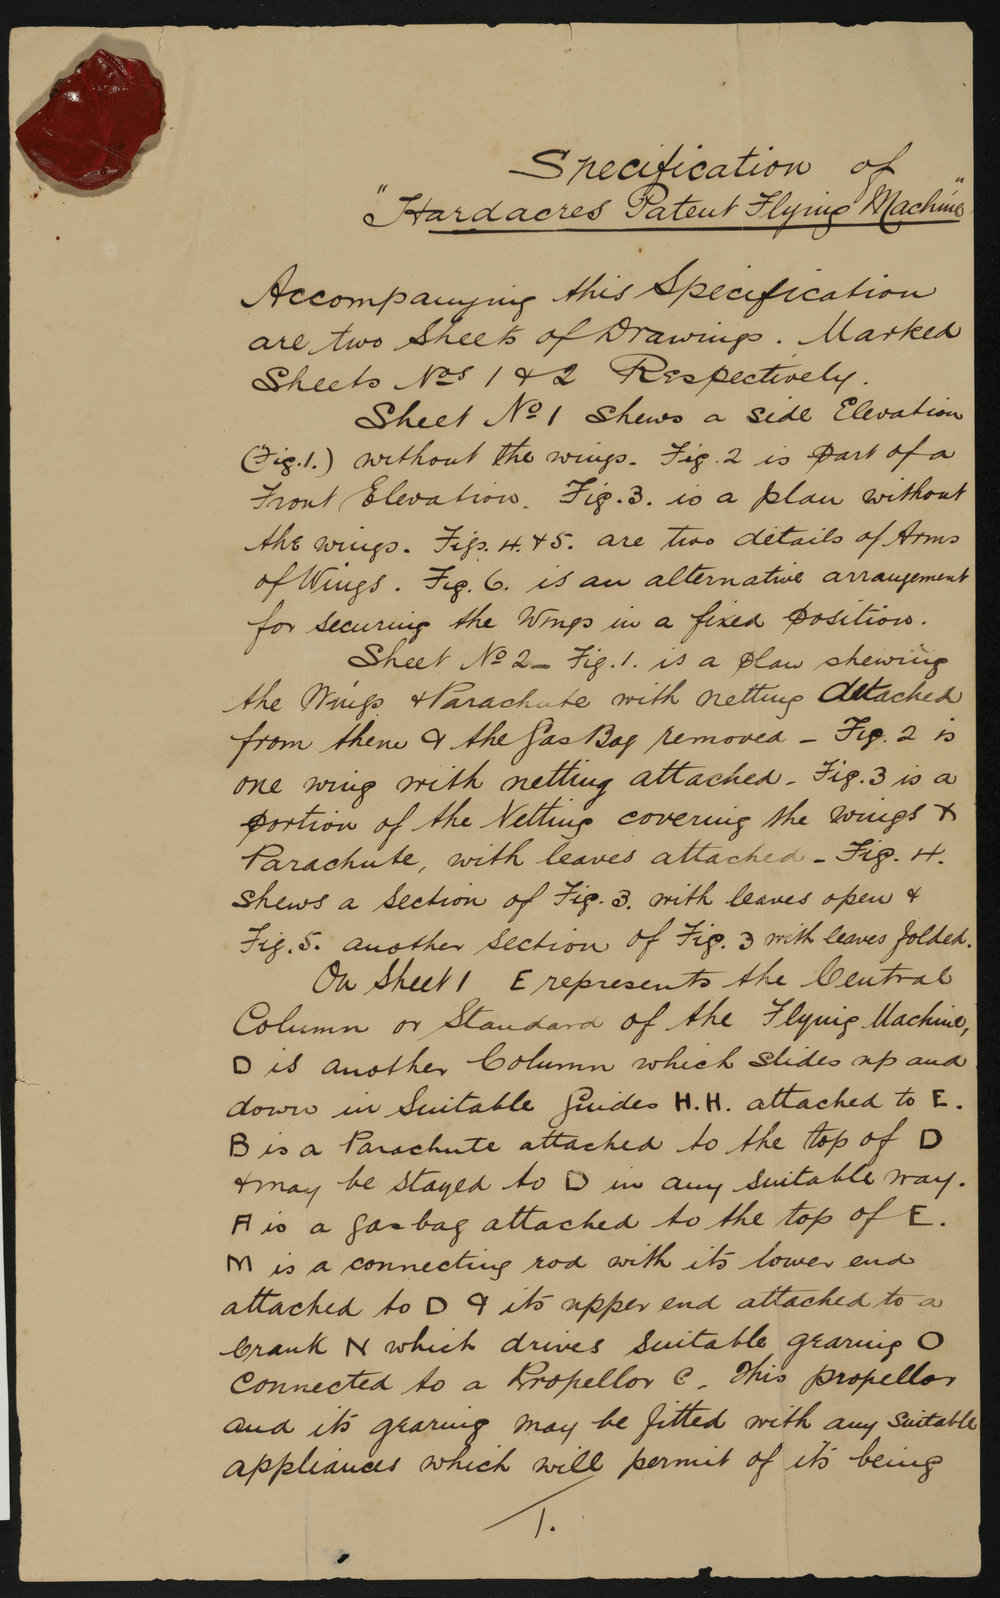 Specification of
"Hardacres Patent Flying Machine"
Accompanying this Specification
are two Sheets of Drawings. Marked
Sheets Nos 1 & 2 Respectively.
Sheet No 1 shews a side Elevation
(Fig. 1.) without the wings. Fig. 2 is part of a
Front Elevation. Fig. 3. is a plan without
the wings. Figs. 4. & 5. are two details of Arms
of Wings. Fig. 6. is an alternative arrangement
for securing the Wings in a fixed position.
Sheet No 2 – Fig. 1. is a plan shewing
the Wings & Parachute with netting detached
from them & the Gas Bag removed – Fig. 2 is
one wing with netting attached – Fig. 3 is a
portion of the Netting covering the wings &
Parachute, with leaves attached – Fig. 4.
shews a section of Fig. 3. with leaves open &
Fig. 5. another section of Fig. 3 with leaves folded.
On Sheet 1 E represents the Central
Column or Standard of the Flying Machine,
D is another Column which slides up and
down in Suitable Guides H.H. attached to E.
B is a Parachute attached to the top of D
& may be stayed to D in any suitable way.
A is a gas bag attached to the top of E.
M is a connecting rod with its lower end
attached to D & its upper end attached to a
Crank N which drives suitable gearing O
connected to a Propellor C. This propellor
and its gearing may be fitted with any suitable
appliances which will permit of its being
1.